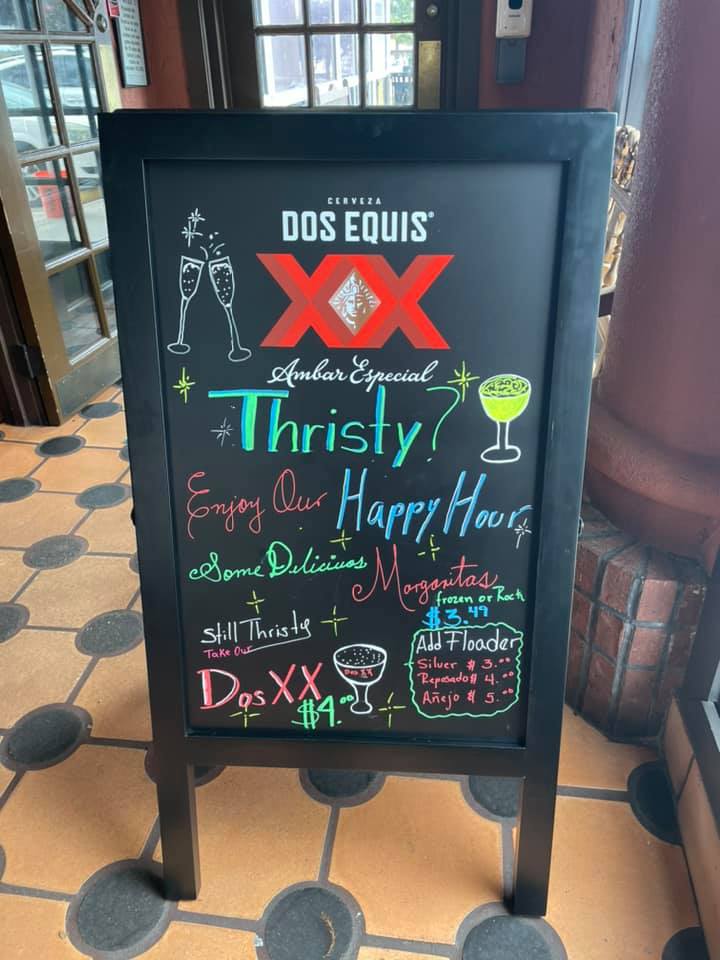 CERVEZA
DOS EQUIS®
XX
Ambar Especial
Thristy?
Enjoy Our Happy Hour
Some Deliciuos Margaritas
frozen or Rock
$3.49
Still Thristy
Take Our
Dos XX
$4.00
Dos XX
Add Floader
Silver $ 3.00
Reposado $ 4.00
Añejo $ 5.00